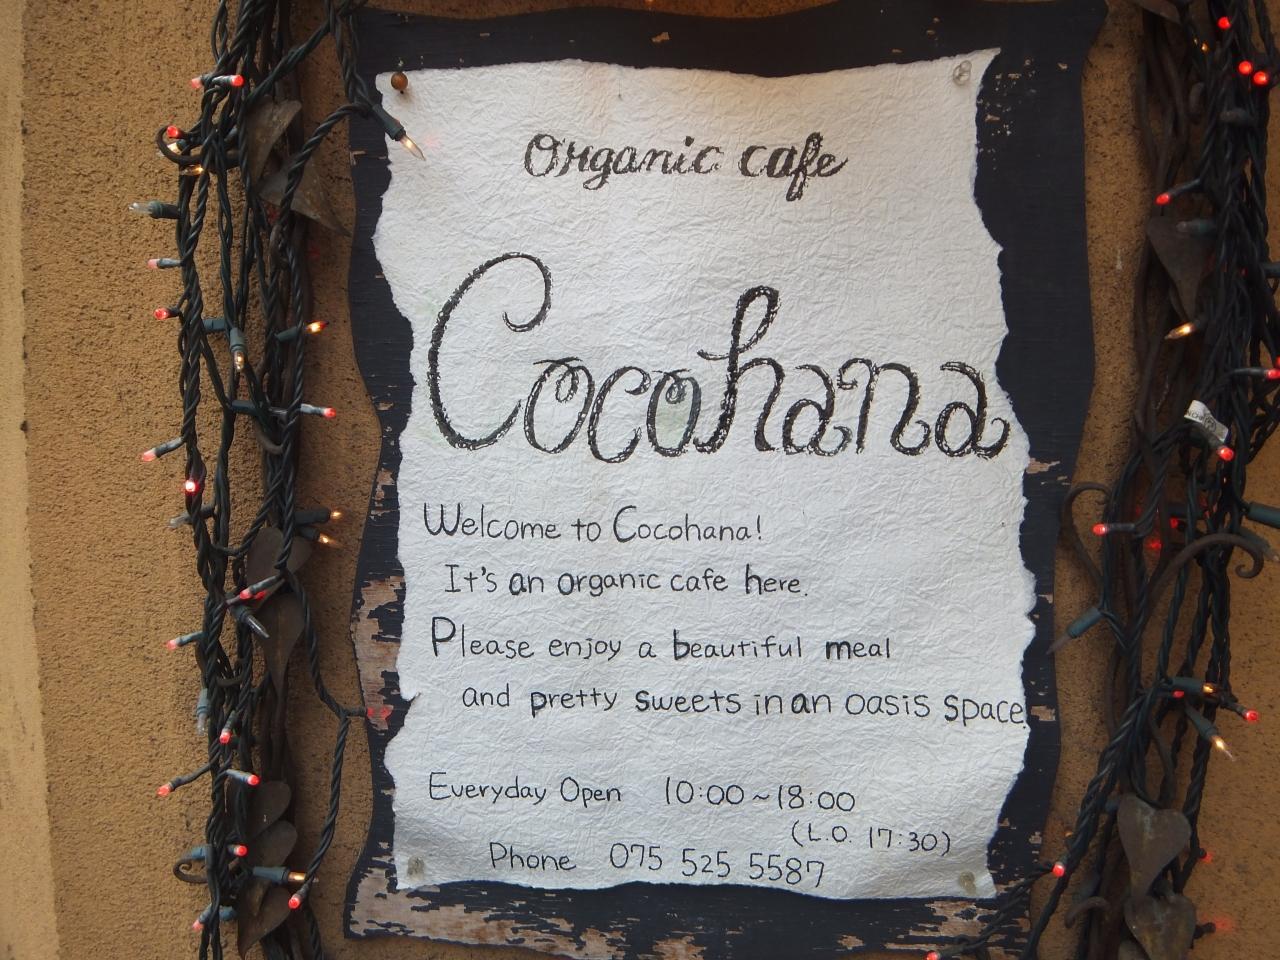 Organic cafe
Cocohana
Welcome to Cocohana!
It's an organic cafe here.
Please enjoy a beautiful meal
and pretty sweets in an oasis space.
Everyday Open 10:00~18:00
(L.O. 17:30)
Phone 075 525 5587